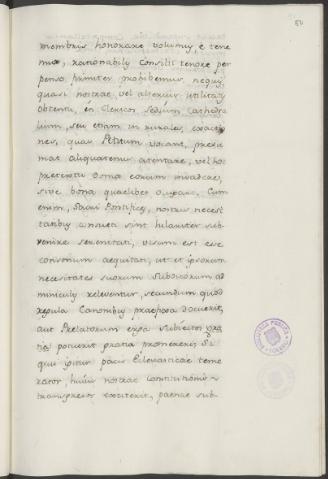 membris honorare volumus, e tene
mur, rationabily Consilii tenore per
penso firmiter prohibemus, nequis
quasi nostrae, vel alterius utilitatis
obtentu, in Clericos Sedium Cathedra
lium, seu etiam in rurales, exactio
nes, quas Petitum vocant, praesu
mat aliquatenus atentare, vel hoc
pretextu Domos eorum invadere,
sive bona quaelibet ocupare. Cum
enim, Sacri Pontifices, nostris necesi
tatibus consueti sint hilariter sub
venire serenitati, visum est ese
consonum aequitati, ut et ipsorum
necesitates suorum Subditorum ad
miniculis releventur, secundum quod
regula Canonibus praeposa docuerit,
aut Prelatorum erga subiectos
potuerit gratia promereri. Si
quis igitur pacis Eclesiasticae teme
rator, huius nostrae constitutionis
transgresor extiterit, paenae sub-